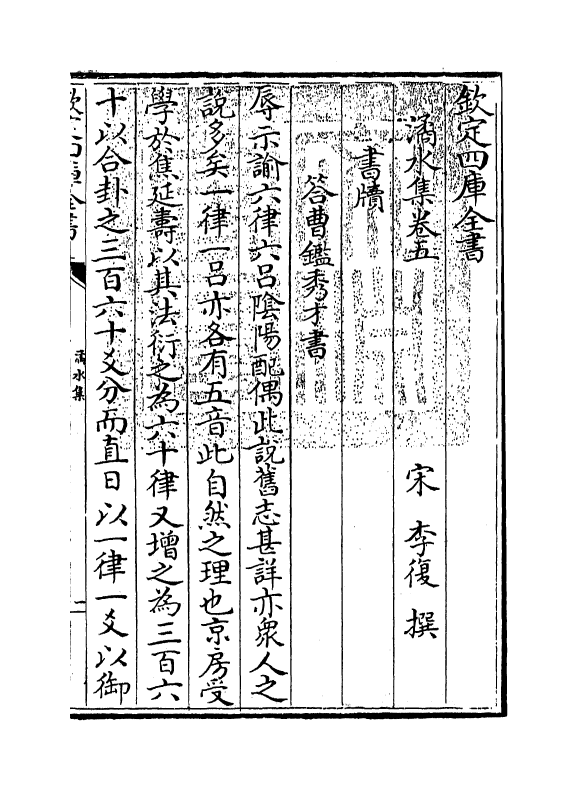 欽定四庫全書
潏水集卷五
宋 李復 撰
書牘
答曹鑑秀才書
辱示諭六律六呂陰陽配偶此說舊志甚詳亦衆人之
說多矣一律一呂亦各有五音此自然之理也京房受
學於焦延壽以其法衍之為六十律又增之為三百六
十以合卦之三百六十爻分而直日以一律一爻以御
欽定四庫全書
潏水集